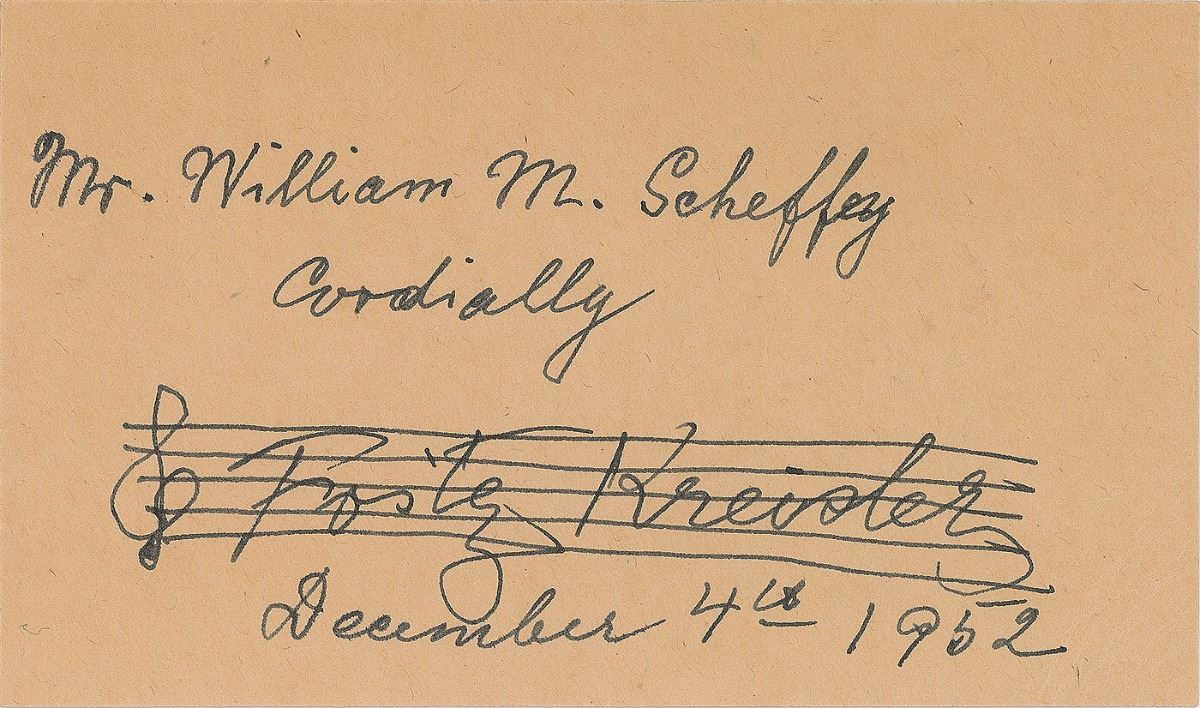 Mr. William M. Scheffey
Cordially
Fritz Kreisler
December 4th 1952